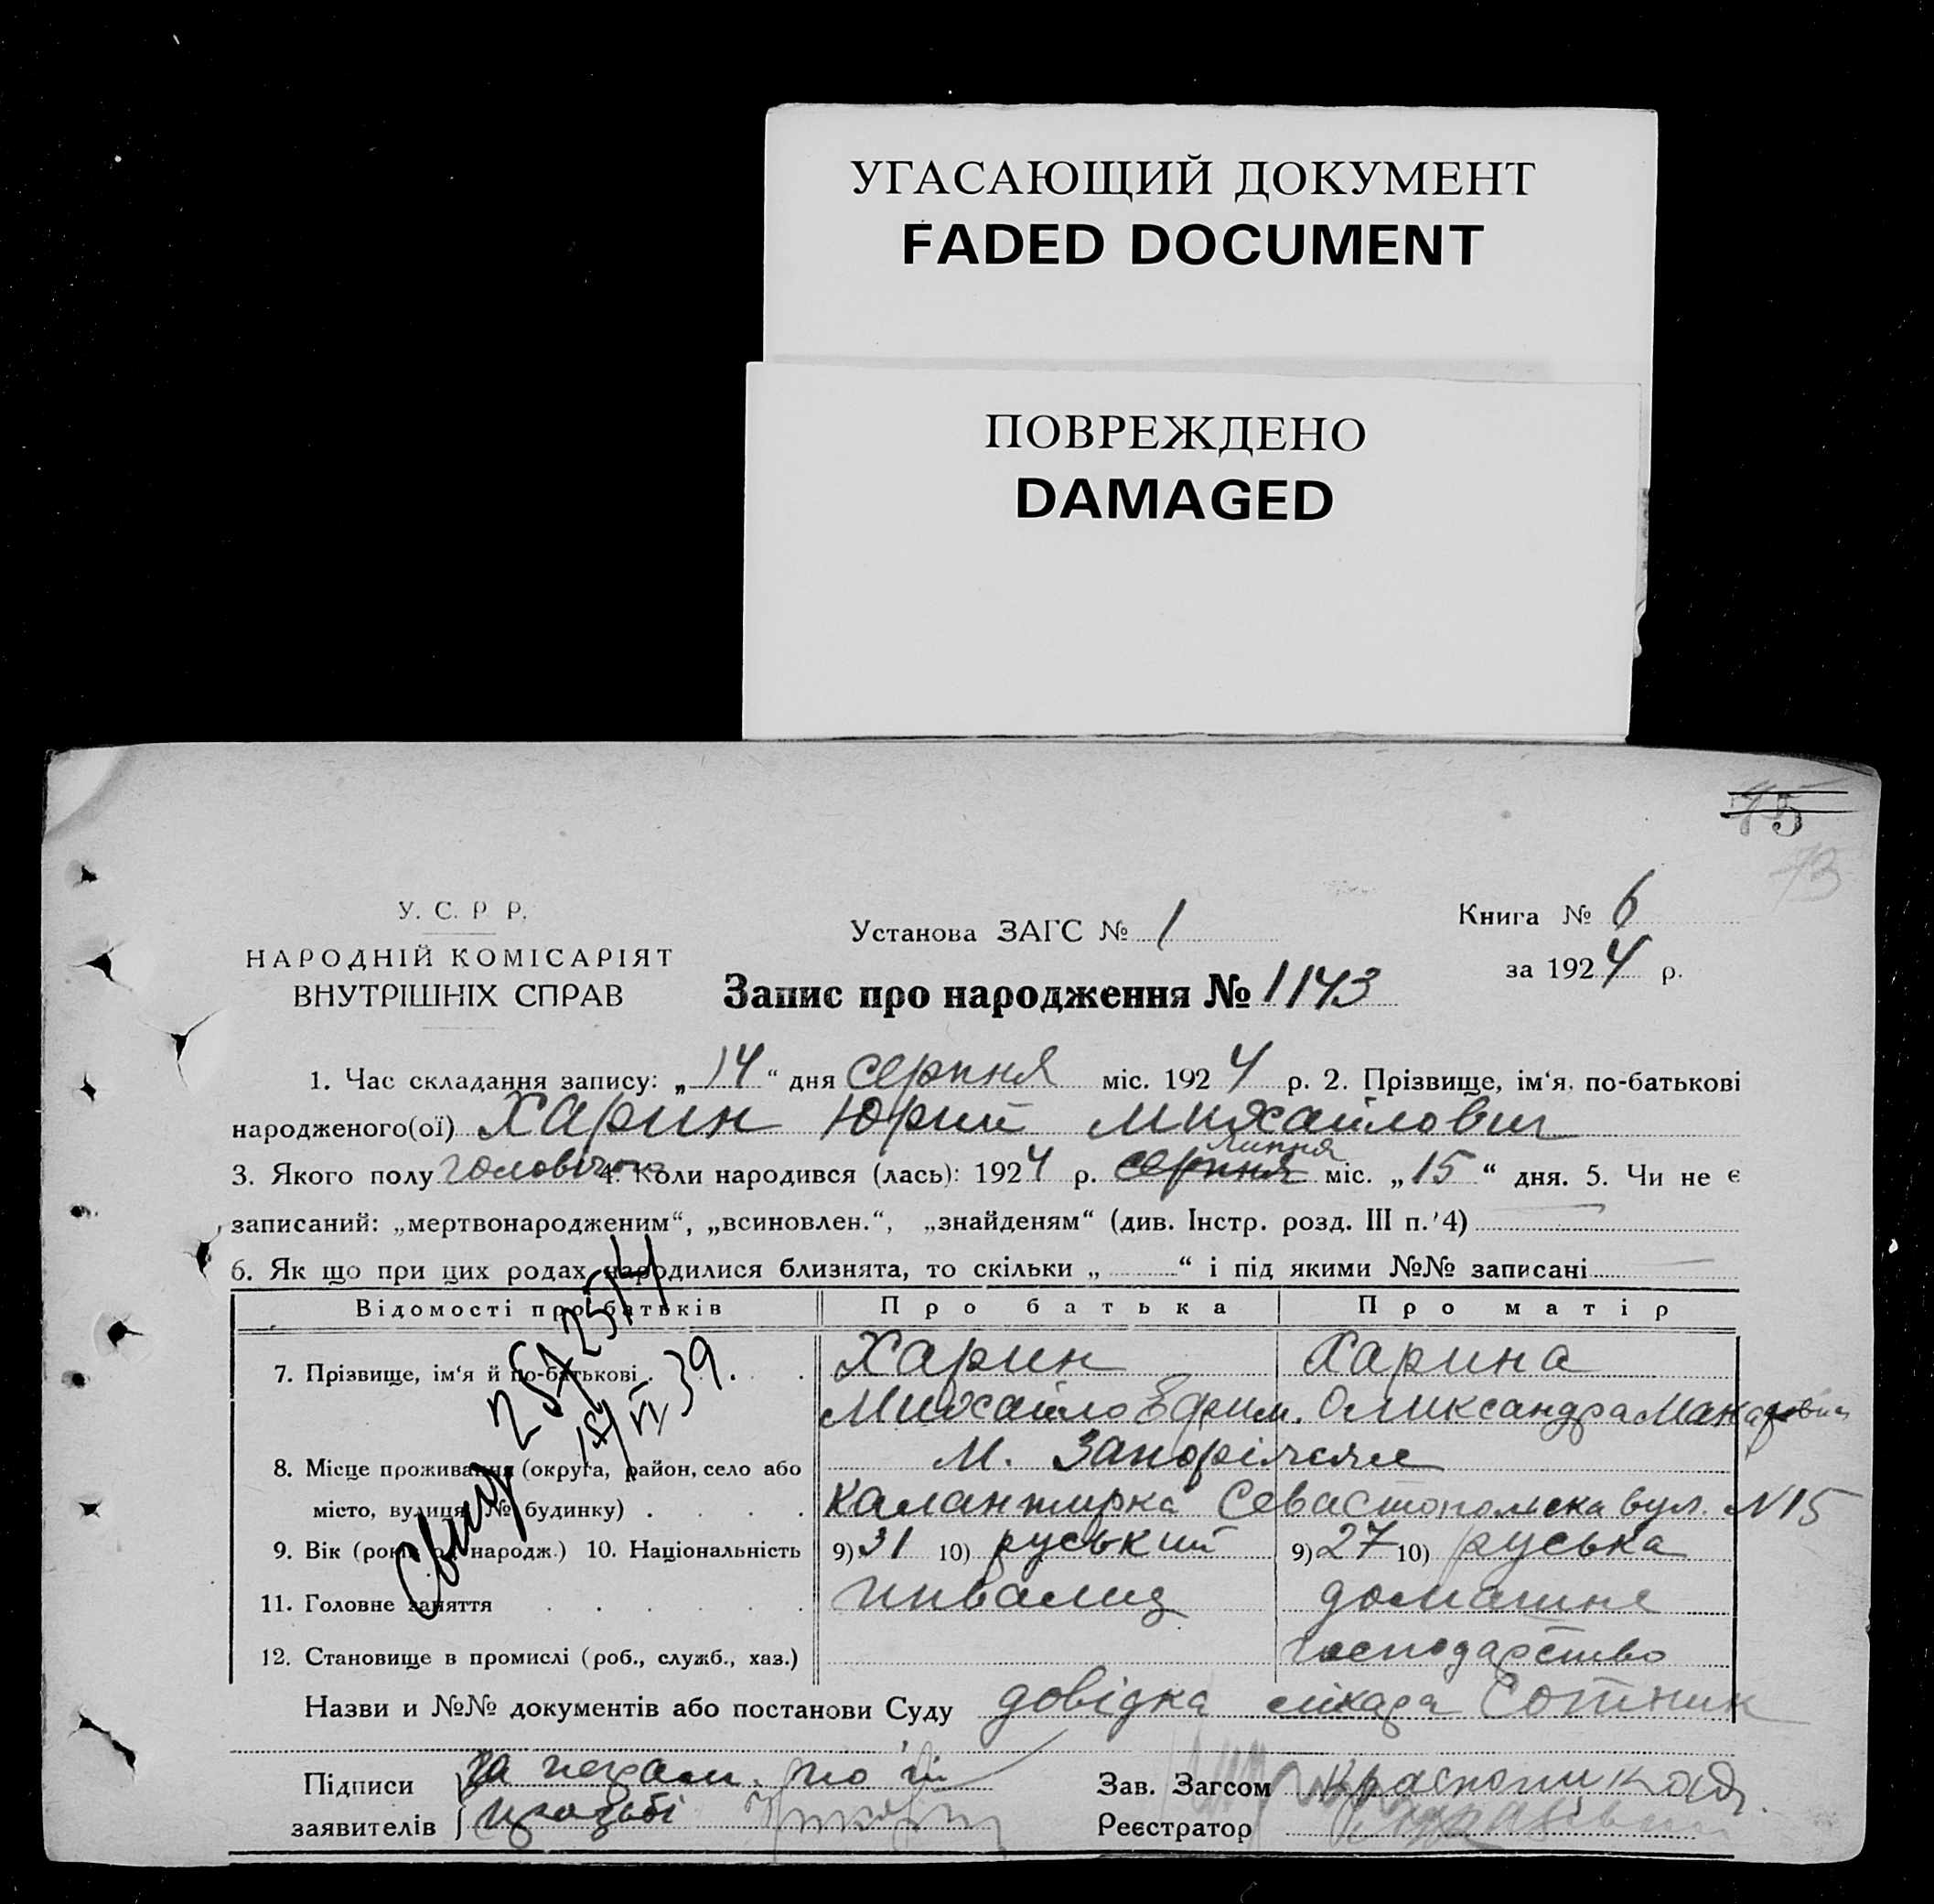 УГАСАЮЩИЙ ДОКУМЕНТ
FADED DOCUMENT
ПОВРЕЖДЕНО
DAMAGED
75
73
У. С. Р Р.
НАРОДНІЙ КОМІСАРІЯТ
ВНУТРІШНІХ СПРАВ
Установа ЗАГС № 1
Книга № 6
за 1924 р.
Запис про народження № 1143
1. Час складання запису: „14“ дня серпня міс. 1924 р. 2. Прізвище, ім‘я, по-батькові
народженого(ої) Харин Юрий Михайлович
липня
3. Якого полу 4. Коли народився (лась): 1924 р. серпня міс. „15“ дня. 5. Чи не є
записаний: „мертвонародженим“, „всиновлен.“, „знайденям“ (див. Інстр. розд. III п. 4)
6. Як що при цих родах народилися близнята, то скільки „ “ і під якими №№ записані
Відомості про батьків Про батька Про матір
7. Прізвище, ім‘я й по-батькові Харин Харина
Михайло Ефим. Олександра Макаровна
8. Місце проживання (округа, район, село або М. Запоріжжє
місто, вулиця, № будинку) Калантирка Севастопольска вул. N 15
9. Вік (років од народж.) 10. Національність 9) 31 10) руський 9) 27 10) руська
11. Головне заняття инвалид домашнє
12. Становище в промислі (роб., служб., хаз.) господарство
39.
Назви и №№ документів або постанови Суду довідка лікаря Сотник
Підписи за неграм. по її Зав. Загсом
заявителів прозьбі Реєстратор